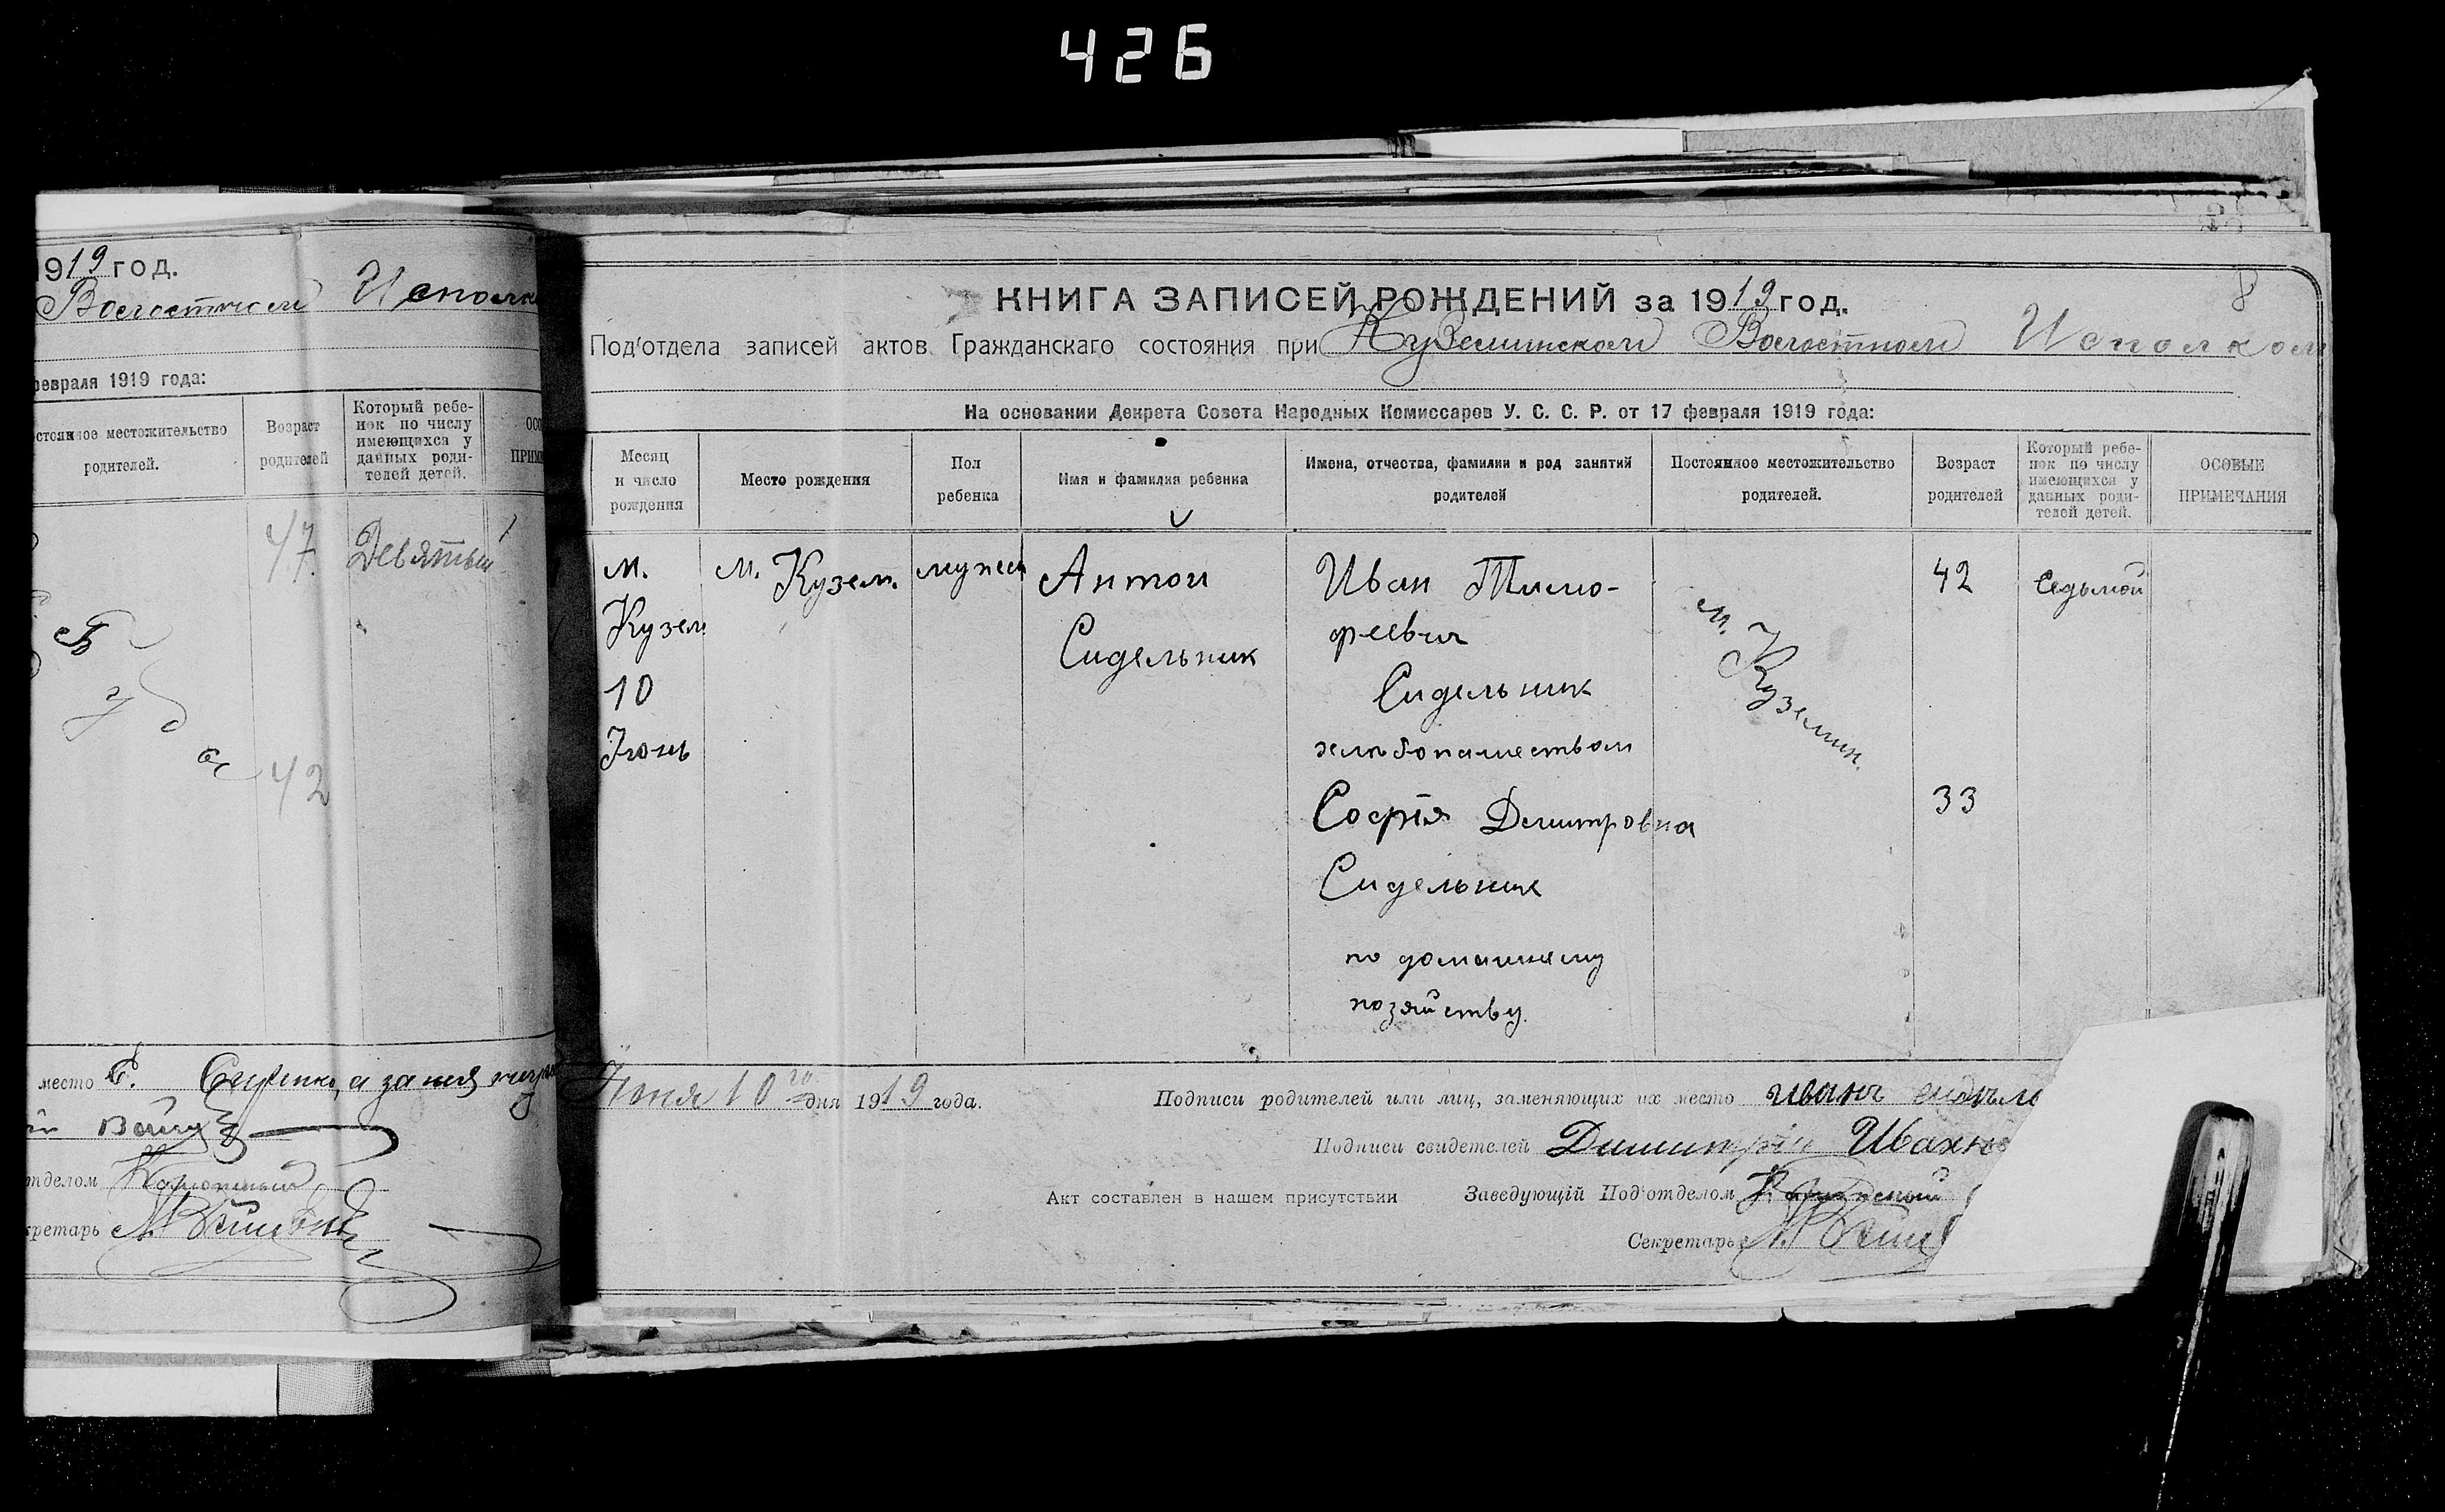 426
1919 год.
Волостном Исполк
февраля 1919 года:
стоянное местожительство родителей.
Возраст родителей
Который ребе-
нок по числу
имеющихся у
данных роди-
телей детей.
47
Девятый
42
место С.
а за нея
тделом
кретарь
8
КНИГА ЗАПИСЕЙ РОЖДЕНИЙ за 1919 год.
Под'отдела записей актов Гражданскаго состояния при Куземинском Волостном Исполком
На основании Декрета Совета Народных Комиссаров У. С. С. Р. от 17 февраля 1919 года:
Месяц
и число
рождения
Место рождения
Пол
ребенка
Имя и фамилия ребенка
Имена, отчества, фамилии и род занятий
родителей
Постоянное местожительство
родителей.
Возраст
родителей
Который ребе-
нок по числу
имеющихся у
данных роди-
телей детей.
ОСОБЫЕ
ПРИМЕЧАНИЯ
м.
Кузем
10
Июнь
м. Кузем.
мужеск
Антон
Сидельник
Иван Тимо-
феевич
Сидельник
хлебопашеством
Софія Димитровна
Сидельник
по домашнему
хозяйству.
м. Куземин.
42
33
Седьмой
Июня 10го дня 1919 года.
Подписи родителей или лиц, заменяющих их место Иванъ
Подписи свидетелей Димитрій Ивахне
Акт составлен в нашем присутствии Заведующій Под'отделом
Секретарь